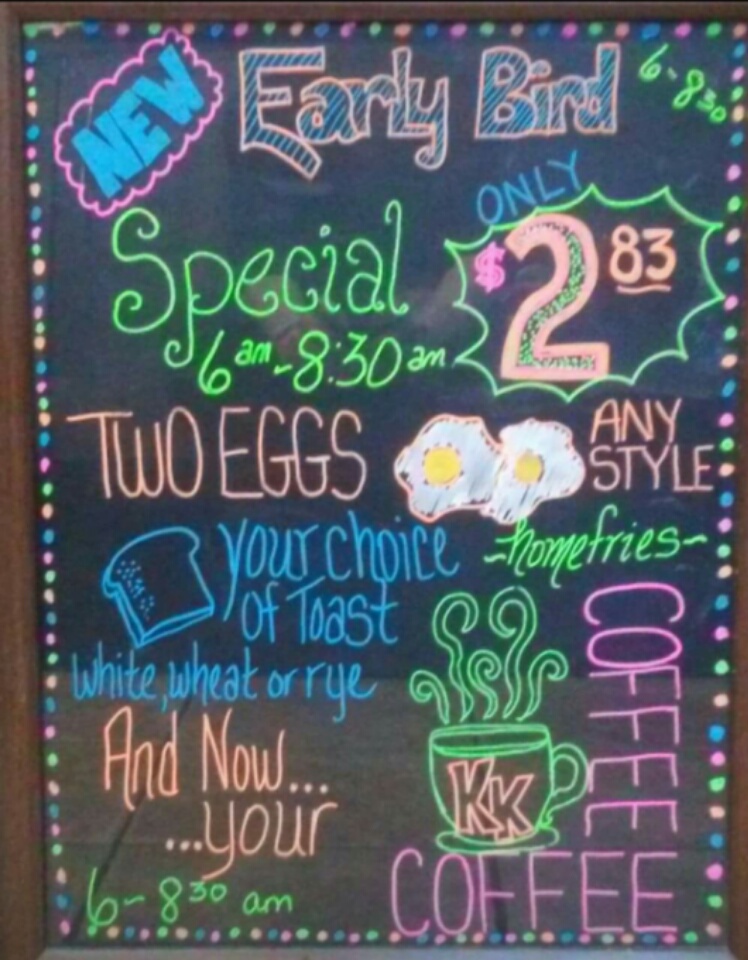 NEW
Early Bird
6-8:30
Special
ONLY
$2 83
6am-8:30am
TWO EGGS
ANY
STYLE
your choice
of Toast
-homefries-
white, wheat or rye
COFFEE
And Now...
...your
KK
COFFEE
6-8 30 am